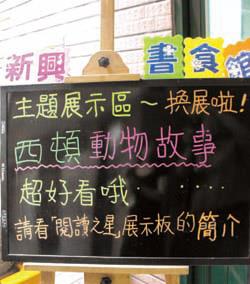 新興 書食館
主題展示區～換展啦!
西頓動物故事
超好看哦‥ ‥‥
請看「閱讀之星」展示板的簡介